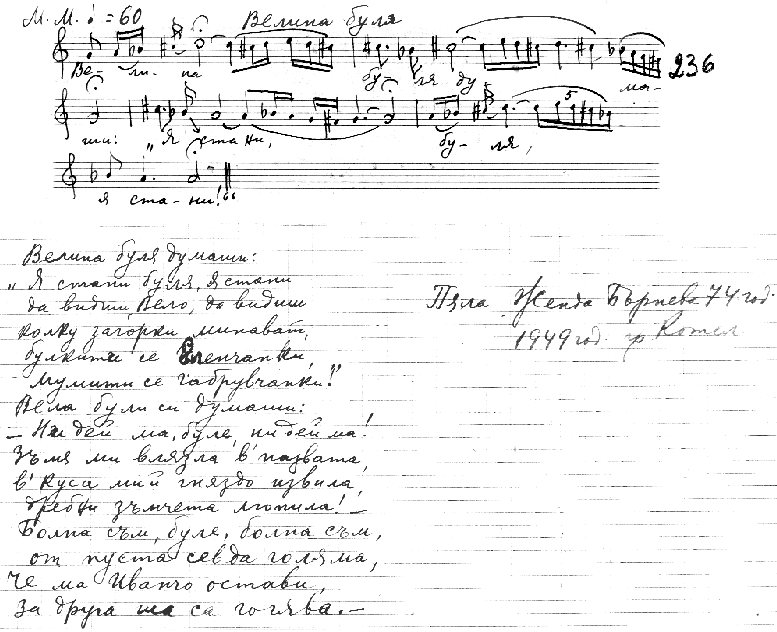 М. М. ♩ = 60 Велина буля
236
Ве- ли- на бу- ля ду ма-
ши: „Я стани, бу- ля,
я ста- ни!"
Велина буля думаши:
„Я стани буля, я стани
да видиш Вело, да видиш
колку загорки минават,
булкити се Еленчанки,
мумити се габрувчанки!"
Вела були си думаши:
– Ни дей ма, буле, ни дей ма!
Зъмя ми влязла в' пазвата,
в' куса мий гняздо извила,
дребни зъмчета люпила! –
Болна съм, буле, болна съм,
от пуста севда голяма,
Че ма Иванчо остави,
за друга са гогява. –
Пяла Женда Бърнева 74 год.
1949 год. гр Котел